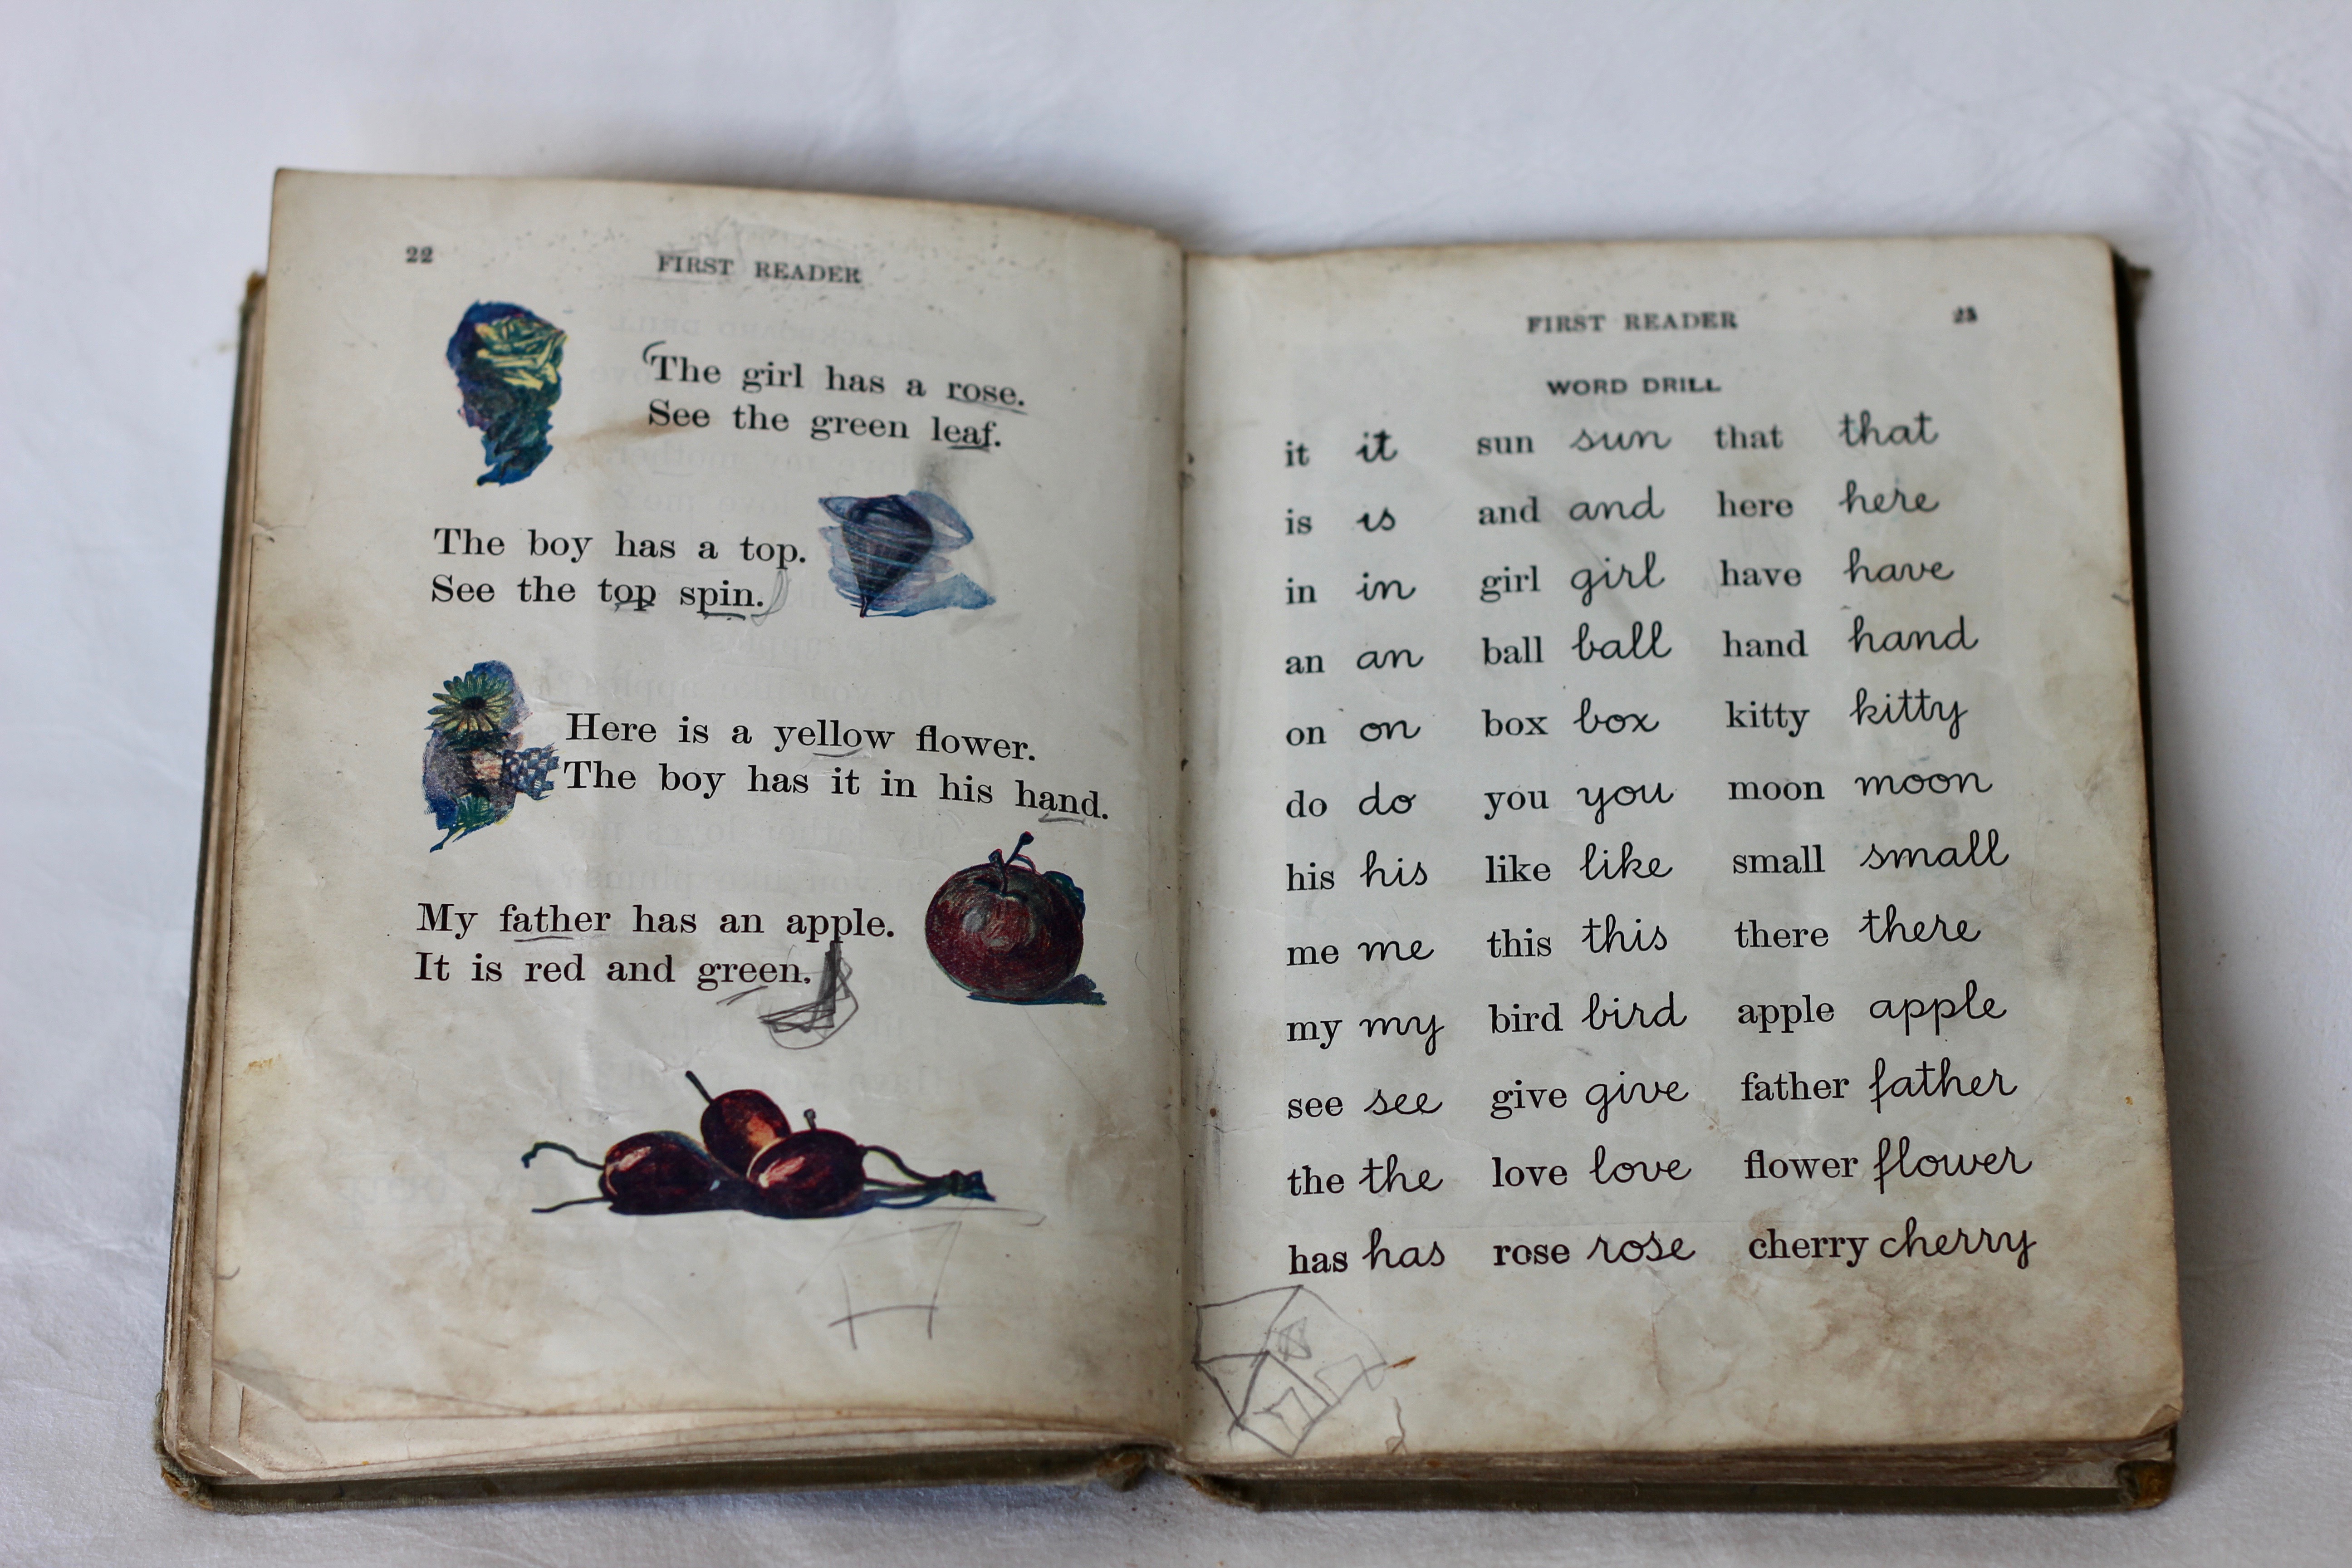 22
FIRST READER
The girl has a rose.
See the green leaf.
The boy has a top.
See the top spin.
Here is a yellow flower.
The boy has it in his hand.
My father has an apple.
It is red and green.
FIRST READER
WORD DRILL
it it sun sun that that
is is and and here here
in in girl girl have have
an an ball ball hand hand
on on box box kitty kitty
do do you you moon moon
his his like like small small
me me this this there there
my my bird bird apple apple
see see give give father father
the the love love flower flower
has has rose rose cherry cherry